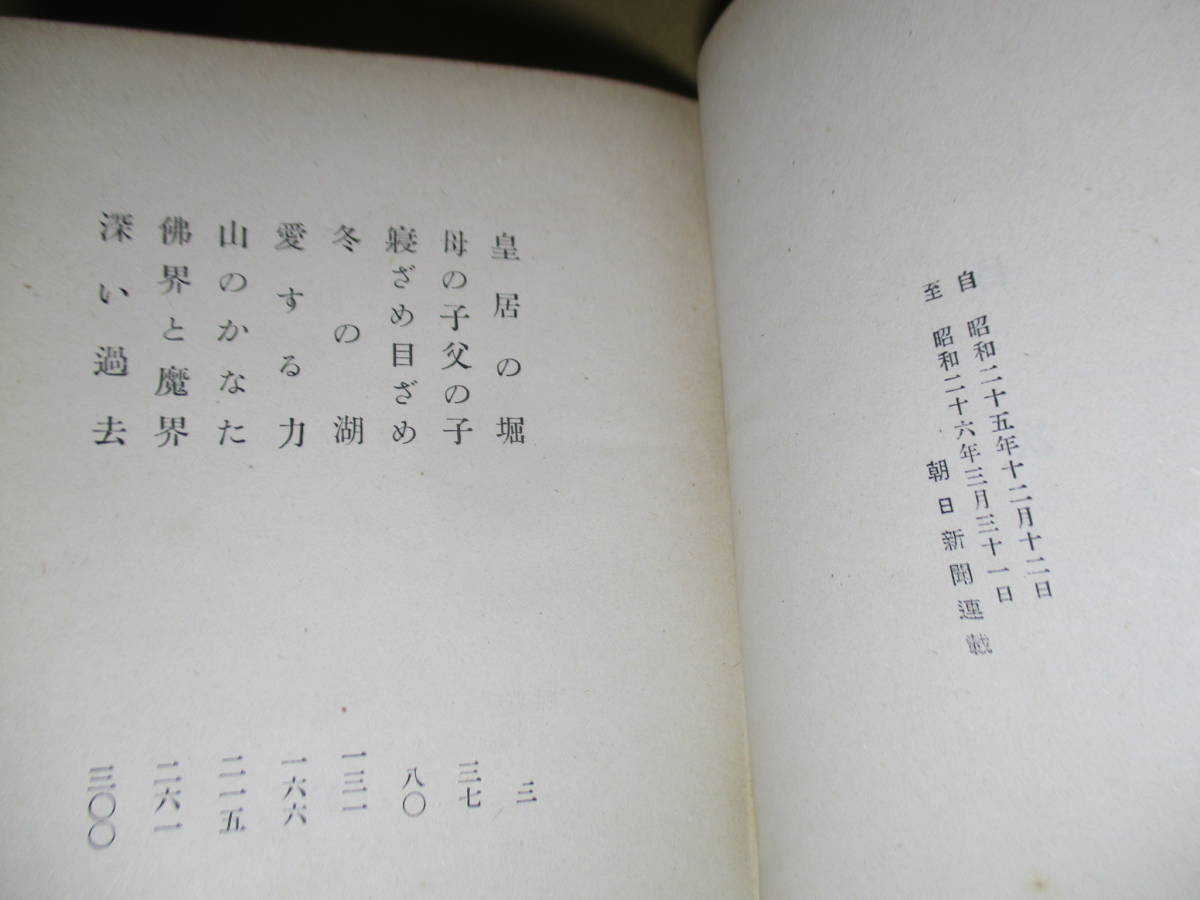 自 昭和二十五年十二月十二日
至 昭和二十六年三月三十一日
朝日新聞連載
皇居の堀 三
母の子父の子 三七
寝ざめ目ざめ 八〇
冬の湖 一三一
愛する力 一六六
山のかなた 二一五
佛界と魔界 二六一
深い過去 三〇〇